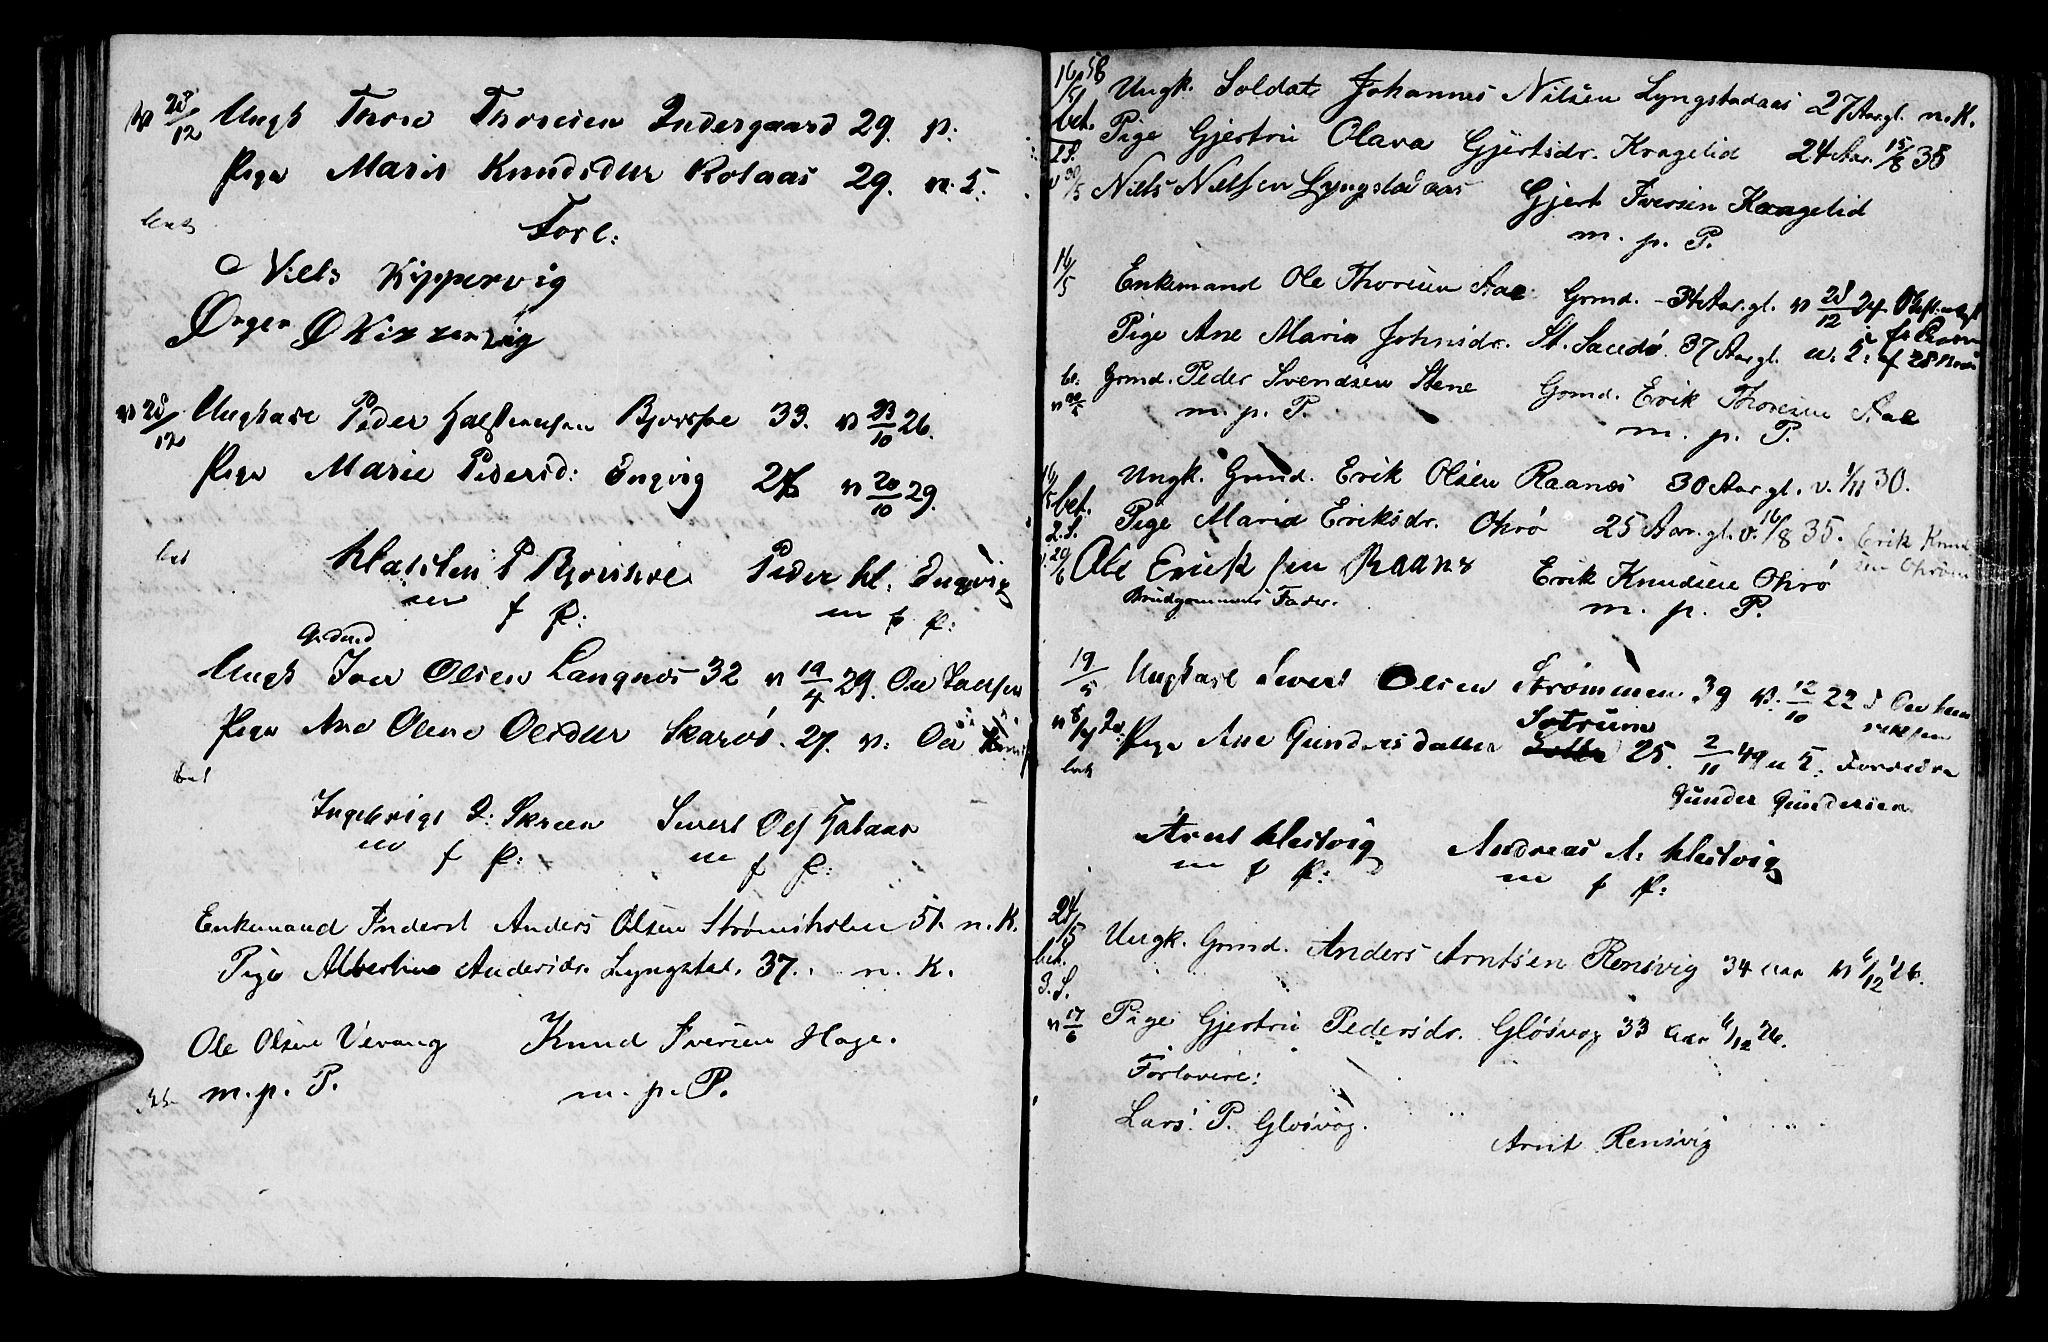 v 28/12 Ungk Thore Thoresen Indergaard 29. v.
Pige Marit Knudsdtr Rolaas 29. n. S.
bet
Forl:
Niels Kippervig
Ørgen Ø Kippervig
v 28/12 Ungkarl Peder Halstensen Bjørshol 33. v 23/10 26.
Pige Marie Pedersd: Engvig 28 v 20/10 29.
bet
Halsten P Bjørshol Peder Hl. Engvig
m f P: m f P:
Grdmd
Ungk Iver Olsen Langnes 32 v 19/4 29.
Pige Ane Olene Olsdtr Skarøs. 27. v:
bet
Ingebrigt Skreen Sivert Ols
m f P: m f P:
Enkemand Inderst Anders Olsen Strømsholm 51. n. K.
Pige Albertine Andersdr. Lyngstad. 37. n. K.
Ole Olsen Vevang Knud Iversen Hage.
m. p. P. m. p. P.
16/5 58 Ungk. Soldat Johannes Nilsen Lyngstadaas 27 Aar gl. n. K.
bet. Pige Gjertru Olava Gjertsdr. Kragelid 24 Aar. 15/8 38
v 30/5 Niels Nielsen Lyngstadaas Gjert Iversen Kragelid
m. p. P.
16/5 Enkemand Ole Thoresen Aae Grmd. 34 Aar. gl. v 28/12 24
Pige Ane Maria Johnsdr. St. Sandø. 37 Aar gl.
Grmd. Peder Svendsen Stene Grmd. Erik Thoresen Aae
m. p. P. m. p. P.
16/5 Ungk. Grmd. Erik Olsen Raanes 30 Aar gl. v. 1/11 30.
bet. Pige Marid Eriksdr. Ohrø 25 Aar. gl. v. 16/8 35. Erik Knud
2. S. sen Ohrø
Ole Erick sen Raanes Erik Knudsen Ohrø
Brudgommens Fader. m. p. P.
19/5 Ungkarl Sivert Olsen Strømmen 39 v. 12/10 22
Sotrum
Pige Ane Gundersdatter 25. 2/11
bet
Gunder Gundersen
Arnt Hestvig Andreas A. Hestvig
m f P: m f P:
24/5 Ungk. Grmd. Anders Arntsen Rensvig 34 Aar v 6/12 26.
bet.
3. S.
v 17/6 Pige Gjertru Pedersdr. Gløsvog 33 Aar 6/12 26.
Forlovere:
Lars P. Gløsvog. Arnt Rensvig